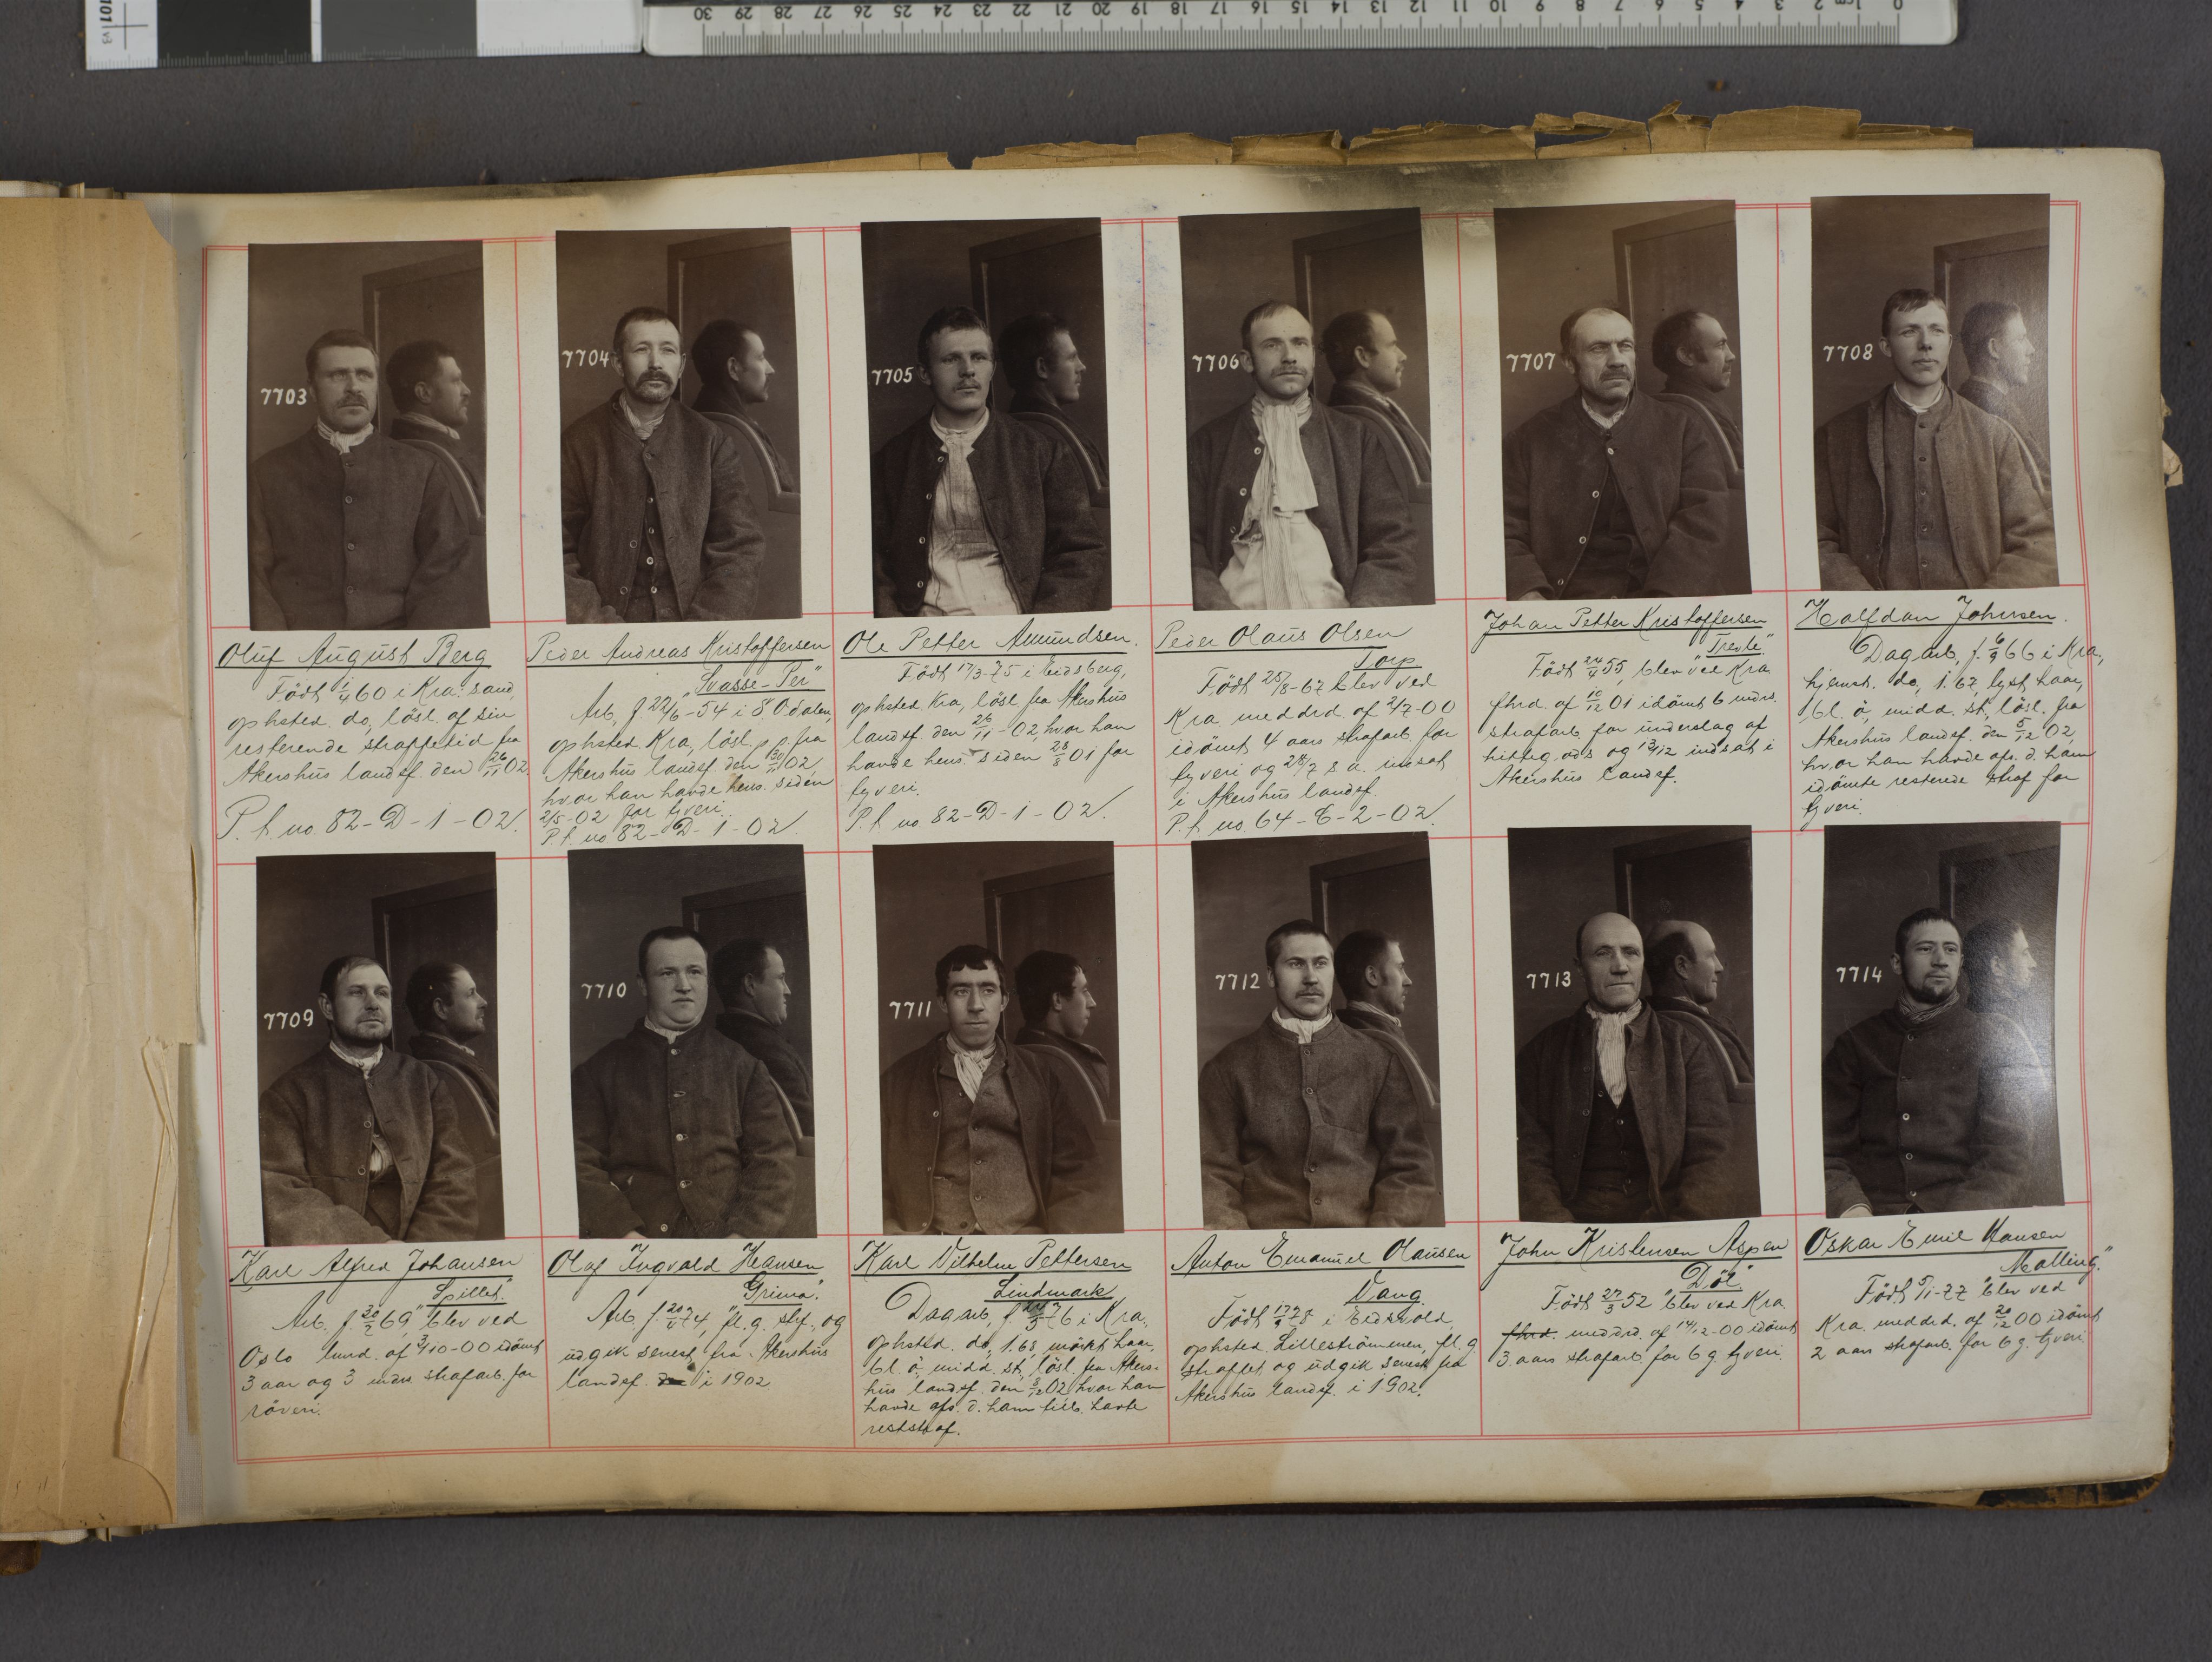 101 v3
30 29 28 27 26 25 24 23 22 21 20 19 18 17 16 15 14 13 12 11 10 9 8 7 6 5 4 3 2 1 cm 0
7703
7704
7705
7706
7707
7708
Oluf August Berg
Född 1/4 60 i Kra. sand,
ophsted. do, lösl. af sin
resterende straffetid fra
Akershus landsf. den 26/11 02.
P. f. no. 82-D-1-02.
Peder Andreas Kristoffersen
"Svasse-Per"
Arb, f 22/6-54 i S. Odalen,
ophsted. Kra, lösl. p. p. fra
Akershus landsf. den 30/11 02,
hvor han havde hens. siden
2/5-02 for tyveri.
P. f. no. 82-D-1-02.
Ole Petter Amundsen.
Född 17/3-75 i Eidsberg,
ophsted Kra, lösl fra Akershus
landsf den 26/11-02, hvor han
havde hens. siden 01 for
tyveri.
P. f. no 82-D-1-02.
Peder Olaus Olsen
Torp
Född 25/8-67 blev ved
Kra. meddrd. af 2/7-00
idömt 4 aars strafarb. for
tyveri og s. a. insat
i Akershus landsf.
P. f. no. 64-E-2-02.
Johan Petter Kristoffersen
Född 24/4 55, blev ved Kra.
fhrd. af 10/12 01 idömt 6 mdrs.
strafarb. for underslag af
hittegods og 13/12 indsat i
Akershus landsf.
Halfdan Johnsen.
Dagarb, f. 66 i Kra.,
hjemst. do, 1.67, lyst haar,
bl. ö, midd. st., lösl. fra
Akershus landsf. den 5/12 02,
hvor han havde afs. d. ham
idömte resterede straf for
tyveri.
7709
7710
7711
7712
7713
7714
Karl Alfred Johansen
"Spillet".
Arb. f 20/2 69, blev ved
Oslo lmrd. af 3/10-00 idömt
3 aar og 3 mdrs strafarb. for
röveri.
Olaf Ingvald Hansen
"Grima".
Arb. f. 74, fl. g. stf., og
udgik senest fra Akershus
landsf. i 1902
Karl Vilhelm Pettersen
Lindmark
Dagarb, f. 76 i Kra.,
ophsted. do, 1.68, mörkt haar,
bl. ö, midd. st., lösl. fra Akers-
hus landsf. den 3/12 02, hvor han
havde afs. d. ham tilb. havte
reststraf.
Anton Emanuel Olausen
Vang
Född 78 i Eidsvold,
ophsted. Lilleströmmen, fl. g.
straffet og udgik senest fra
Akershus landsf. i 1902.
John Kristensen Aspen
"Döl"
Född 27/3 52 blev ved Kra.
fhrd. meddrd. af 14/12-00 idömt
3 aars strafarb. for 6 g. tyveri.
Oskar Emil Hansen
"Malling"
Född 5/1-77 blev ved
Kra. meddrd. af 20/12 00 idömt
2 aars strafarb. for 6 g. tyveri.